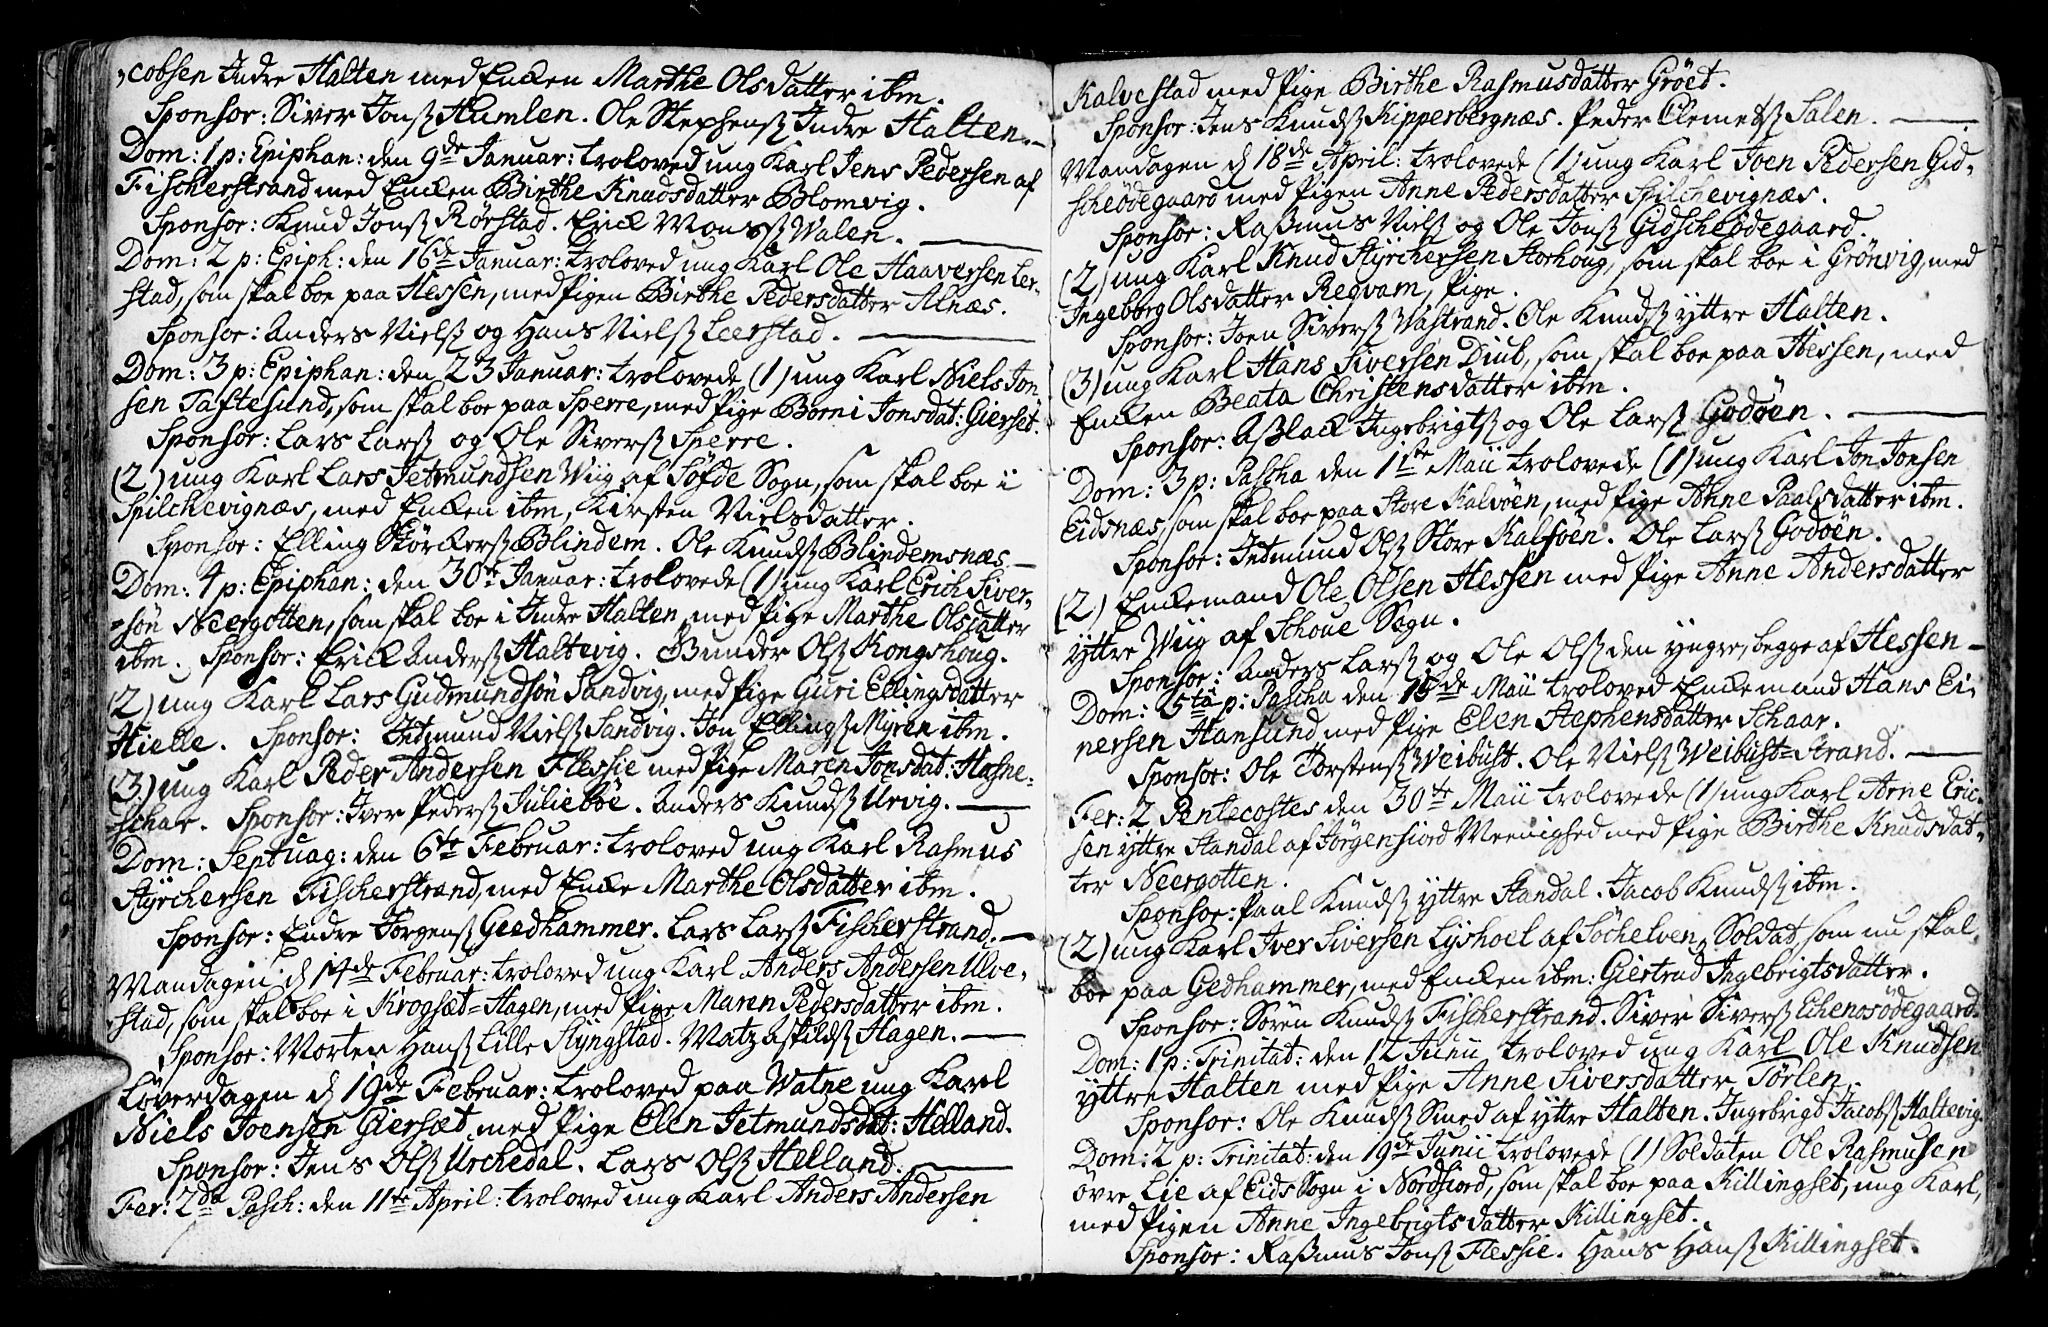 cobsen Indre Halten med Encken Marthe Olsdatter ibm.
Sponsor: Siver Jonß Humlen. Ole Stephensß Indre Halten. —
Dom: 1 p: Epiphan: den 9de Januar: troloved ung Karl Jens Pedersen af
Fischerstrand med Encken Birthe Knudsdatter Blomvig.
Sponsor: Knud Jonß Rörstad. Erick Monsß Walen. —
Dom: 2 p: Epiph: den 16de Januar: troloved ung Karl Ole Haaversen Ler-
stad, som skal boe paa Hessen, med Pigen Birthe Pedersdatter Alnæs.
Sponsor: Anders Nielß og Hans Nielß Leerstad. —
Dom: 3 p: Epiphan: den 23 Januar: trolovede (1) ung Karl Niels Jon-
sen Taftesund, som skal boe paa Sperre, med Pige Borni Jonsdat: Gierset.
Sponsor: Lars Larß og Ole Siverß Sperre.
(2) ung Karl Lars Jetmundsen Wiig af Söfde Sogn, som skal boe i
Spilchevignæs, med Encken ibm, Kirsten Nielsdatter.
Sponsor: Elling Störckerß Blindem. Ole Knudß Blindemsnæs —
Dom: 4 p: Epiphan: den 30te Januar: trolovede (1) ung Karl Erich Siver-
sön Neergotten, som skal boe i Indre Halten, med Pige Marthe Olsdatter
ibm. Sponsor: Erick Anderß Haltevig. Gunder Olß Kongshoug.
(2) ung Karl Lars Gudmundsön Sandvig, med Pige Guri Ellingsdatter
Hielle. Sponsor: Intmund Nielß Sandvig. Jon Ellingß Myren ibm.
(3) ung Karl Peder Andersen Flessie med Pige Maren Jonsdat: Hasne-
schar. Sponsor: Iver Pederß Julieböe. Anders Knudß Urvig. —
Dom: Septuag: den 6te Februar: troloved ung Karl Rasmus
Styrchersen Fischerstrand, med Encke Marthe Olsdatter ibm.
Sponsor: Endre Jörgenß Geedhammer. Lars Larß Fischerstrand. —
Mandagen d 14de Februar: troloved ung Karl Anders Andersen Ulve-
stad, som skal boe i Krogsæt-Hagen, med Pige Maren Pedersdatter ibm.
Sponsor: Morten Hanß Lille Slyngstad. Matz Askildß Hagen. —
Löverdagen d 19de Februar: troloved paa Watne ung Karl
Niels Joensen Giersæt med Pige Elen Jetmundsdat: Helland.
Sponsor: Jens Olß Urchedal. Lars Olß Helland. —
Fer: 2da Pasch: den 11te April: troloved ung Karl Anders Andersen
Kalvestad med Pige Birthe Rasmusdatter Gröet.
Sponsor: Jens Knudß Kipperbergnæs. Peder Clemetß Salen. —
Mandagen d 18de April: trolovede (1) ung Karl Joen Pedersen Gid-
scheödegaard med Pigen Anne Pedersdatter Spilchevignæs.
Sponsor: Raßmus Nielß og Ole Jonß Gidscheödegaard.
(2) ung Karl Knud Styrchersen Storhoug, som skal boe i Grönvig, med
Ingeborg Olsdatter Reqvam, Pige.
Sponsor: Joen Siverß Wastrand. Ole Knudß yttre Halten.
(3) ung Karl Hans Siversen Diub, som skal boe paa Hessen, med
Encken Beata Christensdatter ibm.
Sponsor: Aßlack Ingebrigtß og Ole Larß Godöen. —
Dom: 3 p: Pascha den 1ste Maii trolovede (1) ung Karl Jon Jonsen
Eidsnæs, som skal boe paa Store Kalvöen, med Pige Anne Paalsdatter ibm.
Sponsor: Intmund Olß Store Kalföen. Ole Larß Godöen.
(2) Enckemand Ole Olsen Hessen med Pige Anne Andersdatter
yttre Wiig af Schoue Sogn.
Sponsor: Anders Larß og Ole Olß den yngre, begge af Hessen —
Dom: 5ta p: Pascha den 15de Maii troloved Enckemand Hans Ei-
nersen Hansund med Pige Elen Stephensdatter Schaar.
Sponsor: Ole Torstenß Weibust. Ole Nielß Weibust-Strand. —
Fer: 2 Pentecostes den 30te Maii trolovede (1) ung Karl Arne Eric-
sen yttre Standal af Jörgenfiord Meenighed med Pige Birthe Knudsdat-
ter Neergotten.
Sponsor: Paal Knudß yttre Standal. Jacob Knudß ibm.
(2) ung Karl Iver Siversen Lyshoel af Söchelven, Soldat, som nu skal
boe paa Gedhammer, med Encken ibm: Giertrud Ingebrigtsdatter.
Sponsor: Sören Knudß Fischerstrand. Siver Siverß Echenosödegaard.
Dom: 1 p: Trinitat: den 12 Junii troloved ung Karl Ole Knudsen
yttre Halten med Pige Anne Siversdatter Törlen.
Sponsor: Ole Knudß Smed af yttre Halten. Ingebrigd Jacobß Haltevig.
Dom: 2 p: Trinitat: den 19de Junii trolovede (1) Soldaten Ole Rasmusen
övre Lie af Eids Sogn i Nordfiord, som skal boe paa Killingset, ung Karl,
med Pigen Anne Ingebrigtsdatter Killingset.
Sponsor: Raßmus Jonß Flessie. Hans Hanß Killingset.